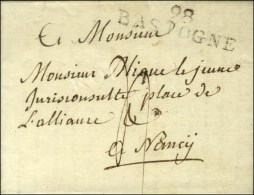 98
BASTOGNE
A Monsieur
Monsieur Mique le jeune
Jurisconsulte place de
L'alliance
A Nancÿ